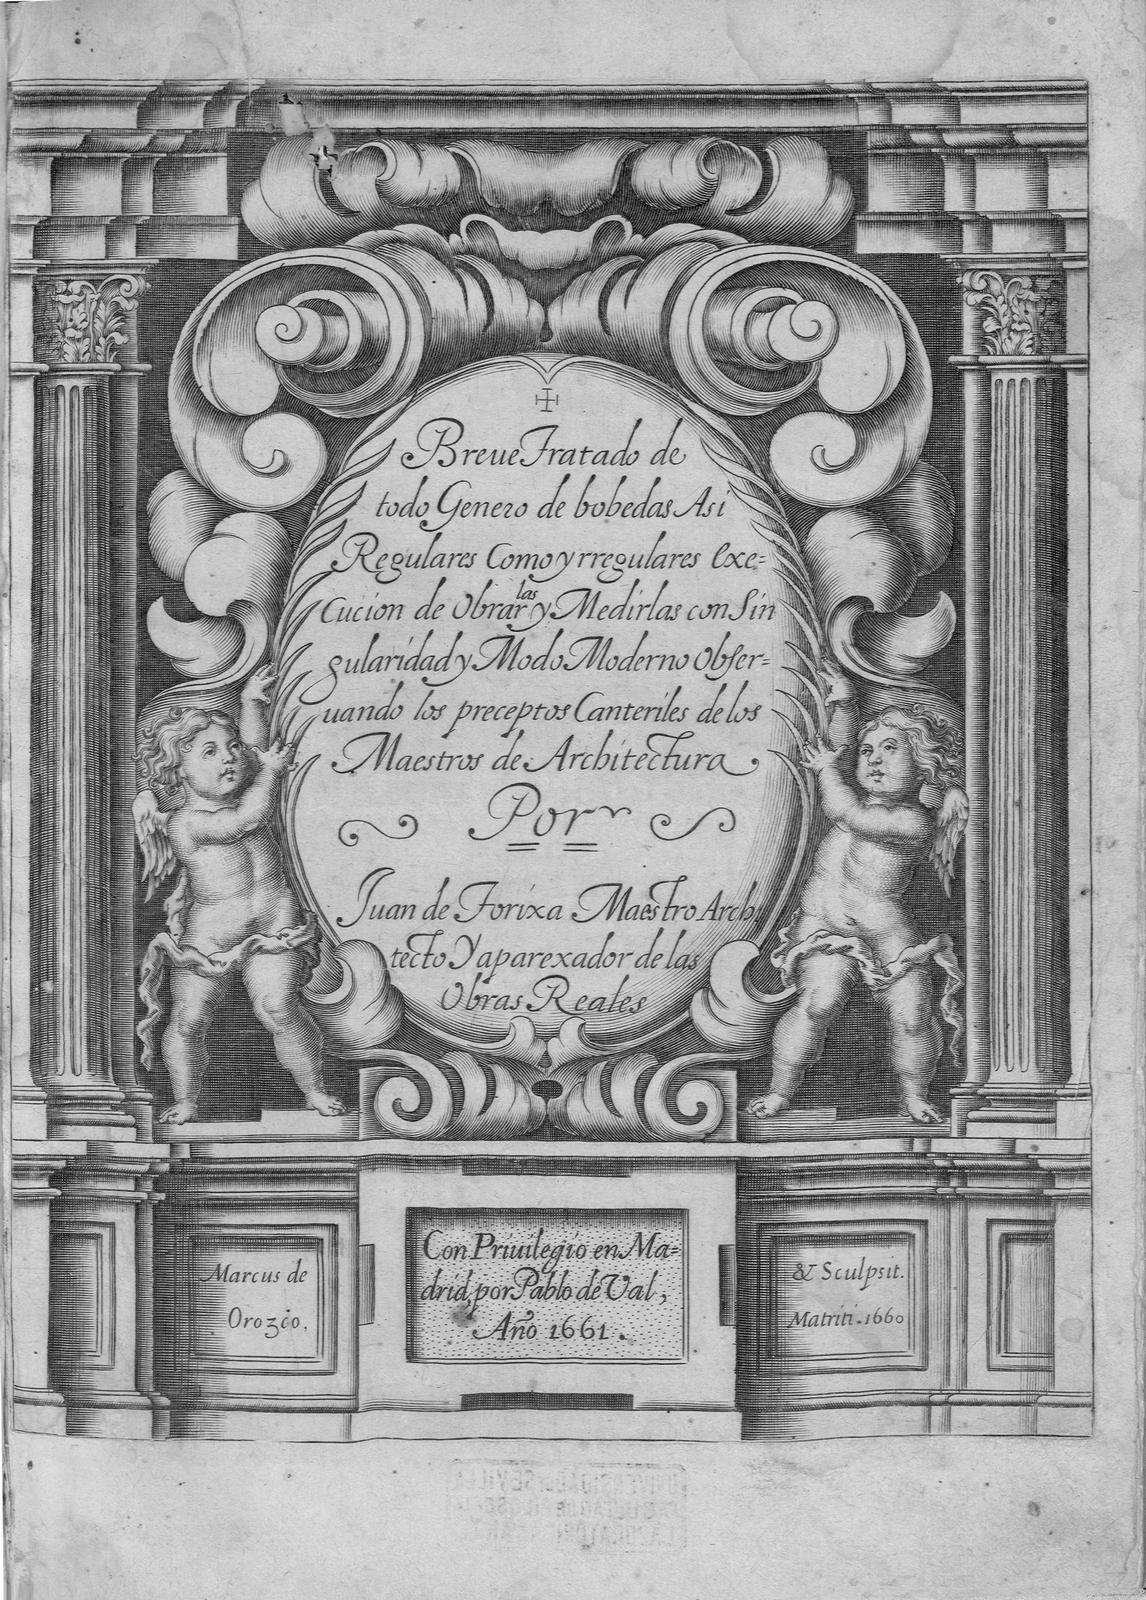 Breue Tratado de
todo Genero de bobedas Asi
Regulares Como yrregulares exe-
Cucion de Obrarlas y Medirlas con Sin
gularidad y Modo Moderno Obser-
uando los preceptos Canteriles de los
Maestros de Architectura
Por
Juan de Torixa Maestro Archi
tecto Y aparexador de las
Obras Reales
Marcus de
Orozco,
Con Priuilegio en Ma-
drid, por Pablo de Val,
Año 1661.
& Sculpsit.
Matriti. 1660